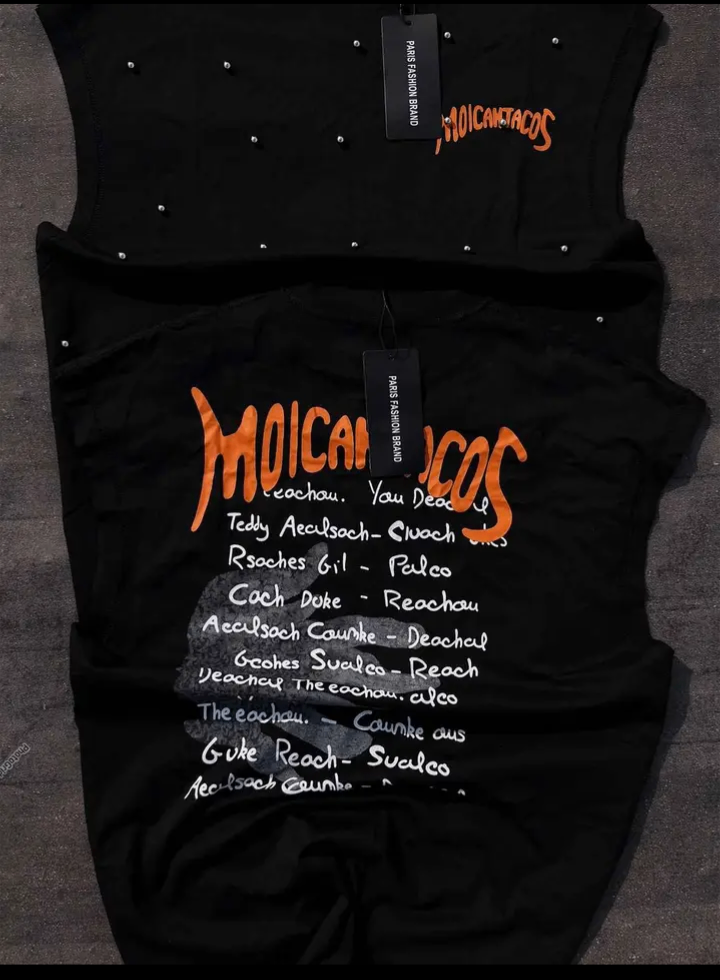 PARIS FASHION BRAND
MOICANTACOS
PARIS FASHION BRAND
MOICAN COS
eachou. You Deac
Teddy Aeculsach- Cluoch
Rsoches Gil - Palco
Coch Duke - Reachou
Aeculsoch Coumke - Deochal
Gcohes Sualco - Reach
Deachal The eochou. alco
The eochou. - Coumke ous
Guke Reach- Sualco
Aeculsoch Coumke -